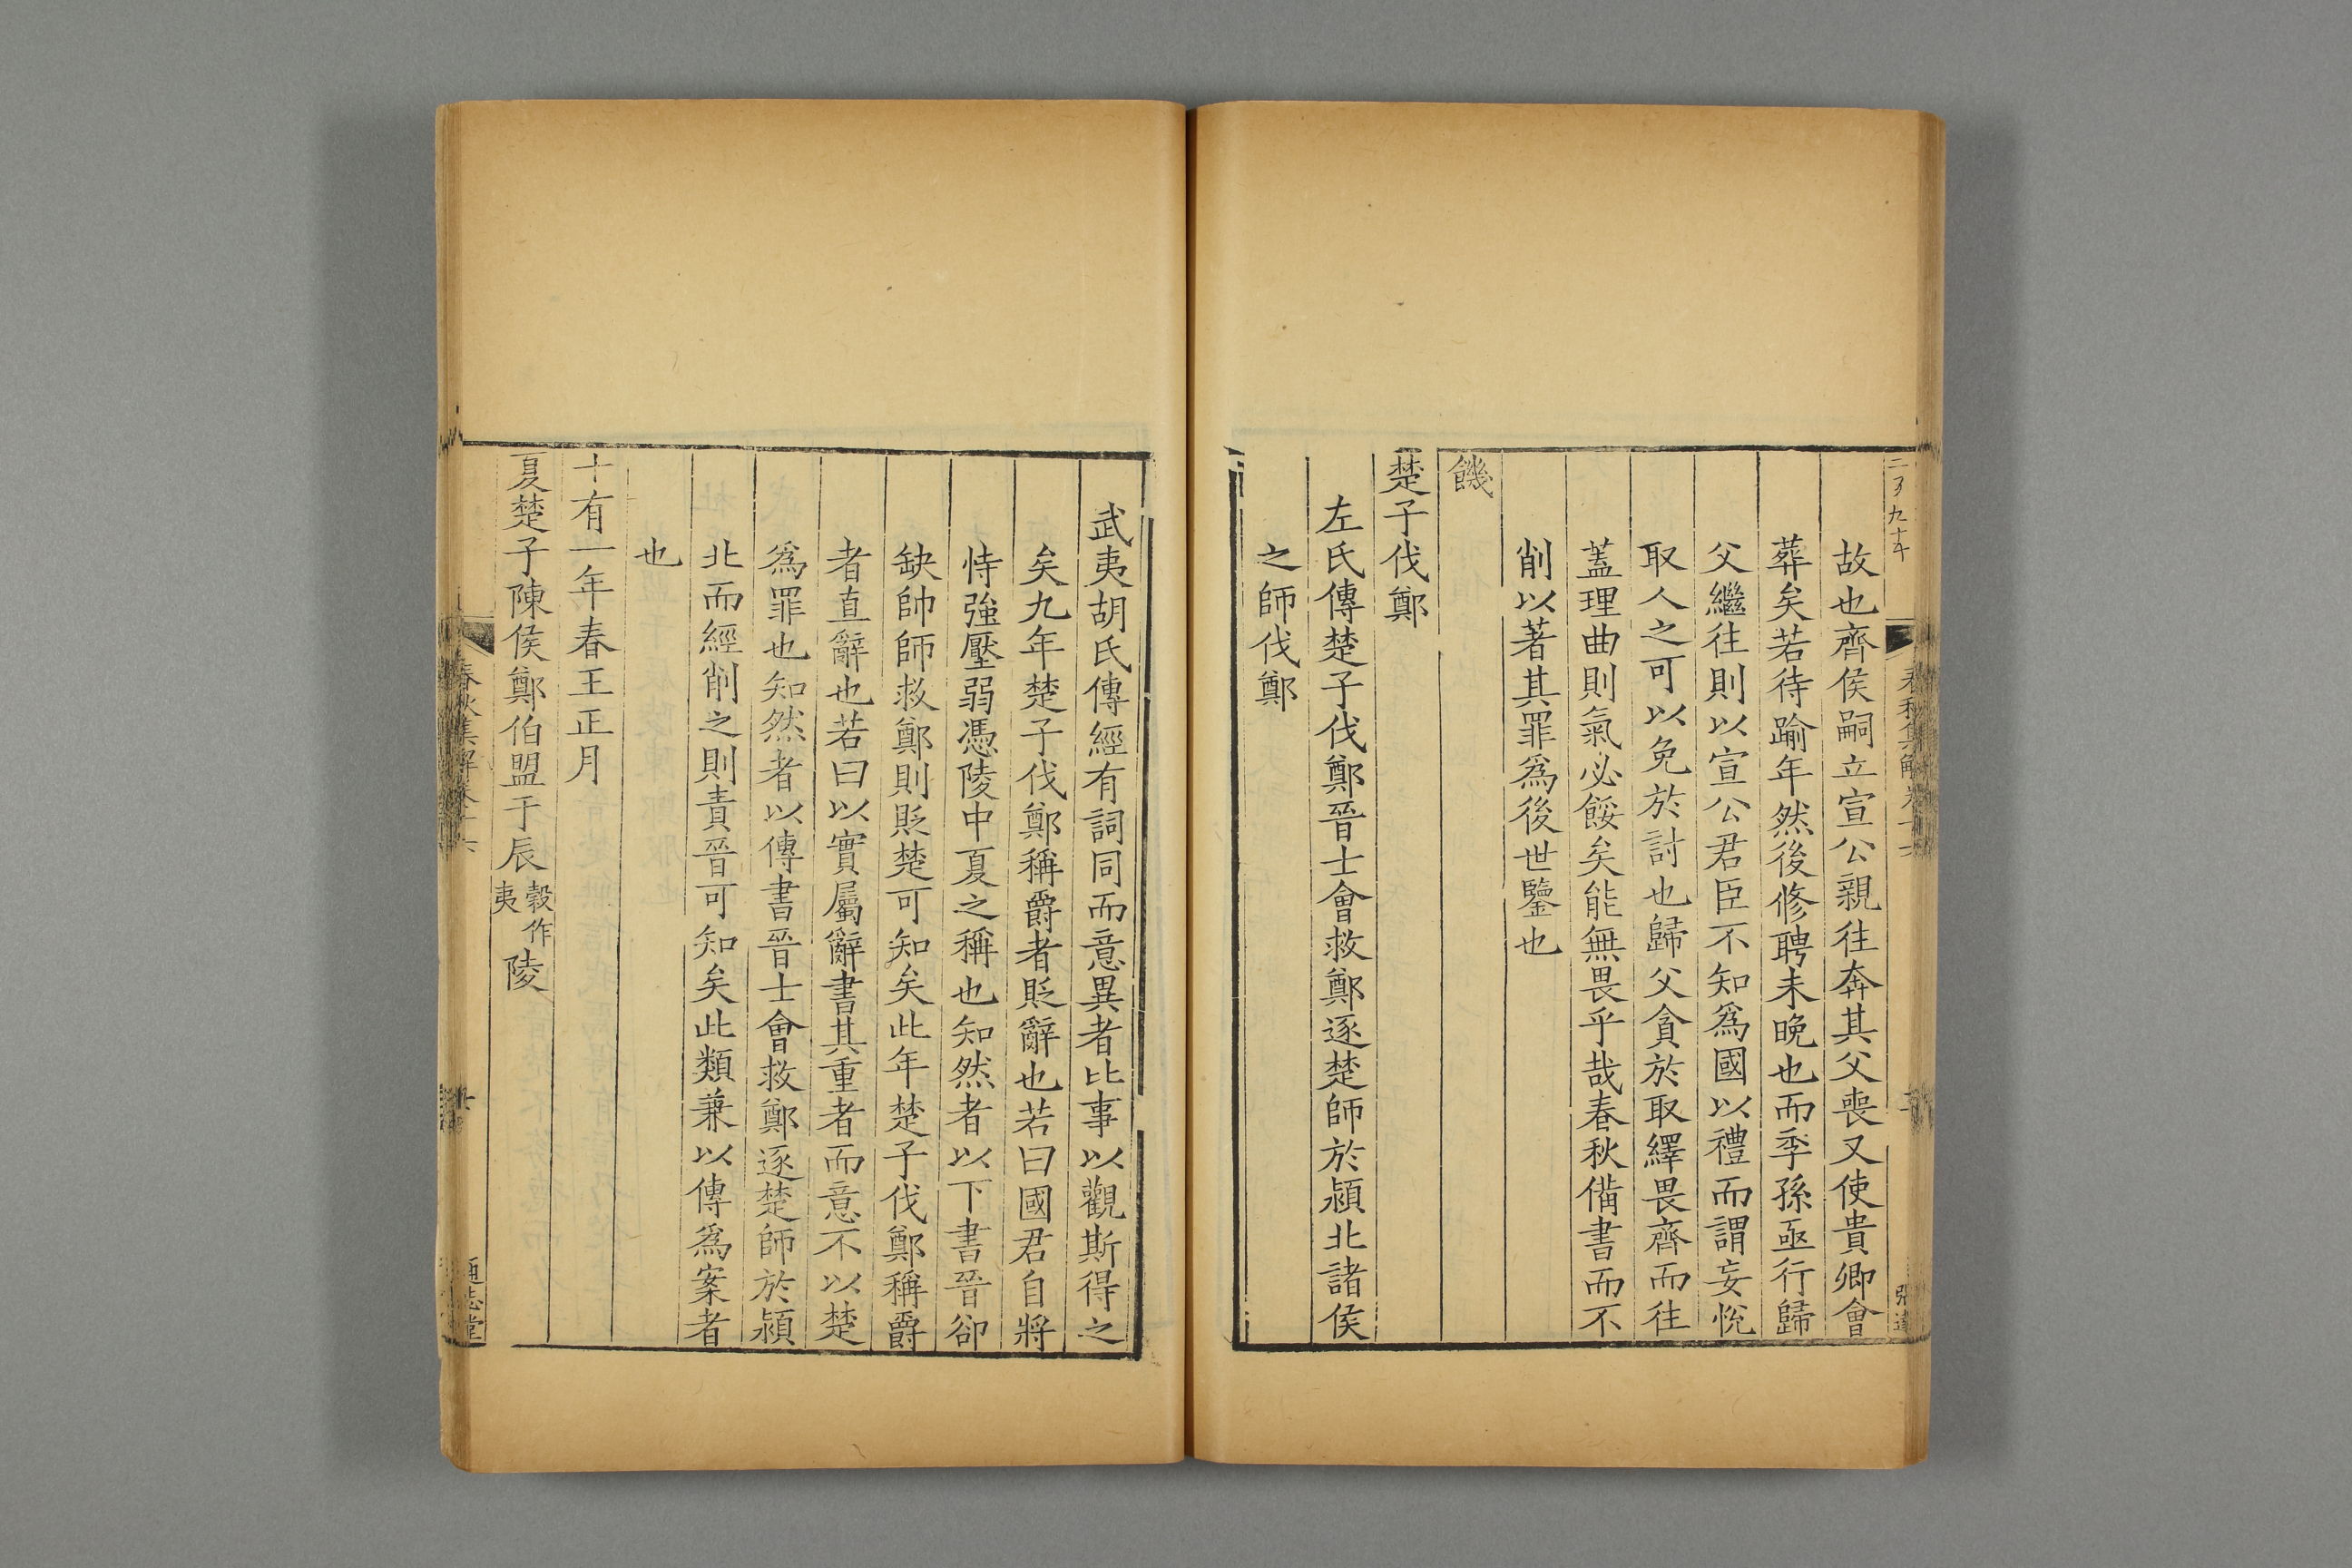 故也齊侯嗣立宣公親往奔其父喪又使貴卿會
葬矣若待踰年然後修聘未晚也而季孫亟行歸
父繼往則以宣公君臣不知爲國以禮而謂妄悅
取人之可以免於討也歸父貪於取繹畏齊而往
蓋理曲則氣必餒矣能無畏乎哉春秋備書而不
削以著其罪爲後世鑒也
饑
楚子伐鄭
左氏傳楚子伐鄭晉士會救鄭逐楚師於潁北諸侯
之師伐鄭
武夷胡氏傳經有詞同而意異者比事以觀斯得之
矣九年楚子伐鄭稱爵者貶辭也若曰國君自將
恃強壓弱憑陵中夏之稱也知然者以下書晉卻
缺帥師救鄭則貶楚可知矣此年楚子伐鄭稱爵
者直辭也若曰以實屬辭書其重者而意不以楚
爲罪也知然者以傳書晉士會救鄭逐楚師於潁
北而經削之則責晉可知矣此類兼以傳爲案者
也
十有一年春王正月
夏楚子陳侯鄭伯盟于辰穀作夷陵
春秋集解卷十六
通志堂